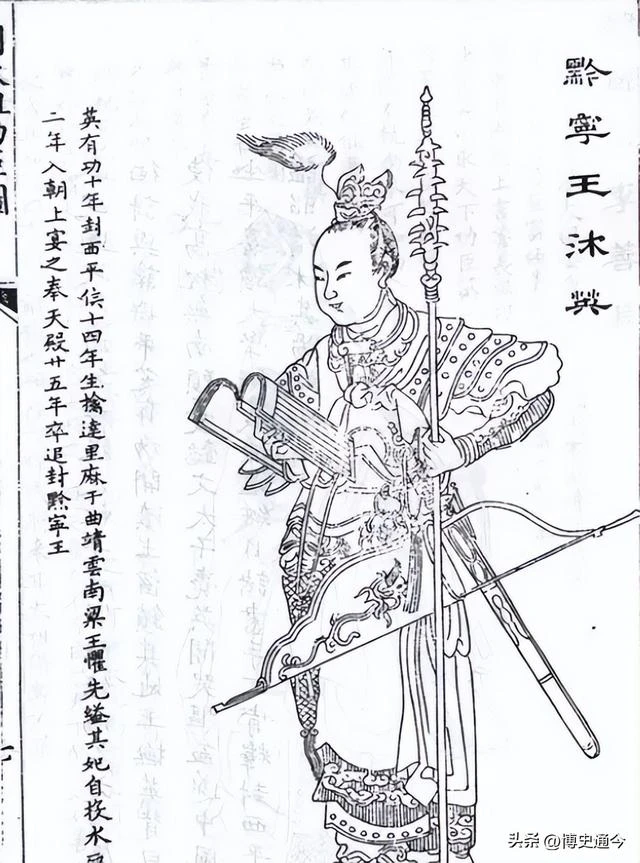 黔寧王沐英
英有功十年封西平侯十四年生擒達里麻于曲靖雲南梁王懼先縊其妃自投水
二年入朝上宴之奉天殿廿五年卒追封黔寧王
头条 @博史通今